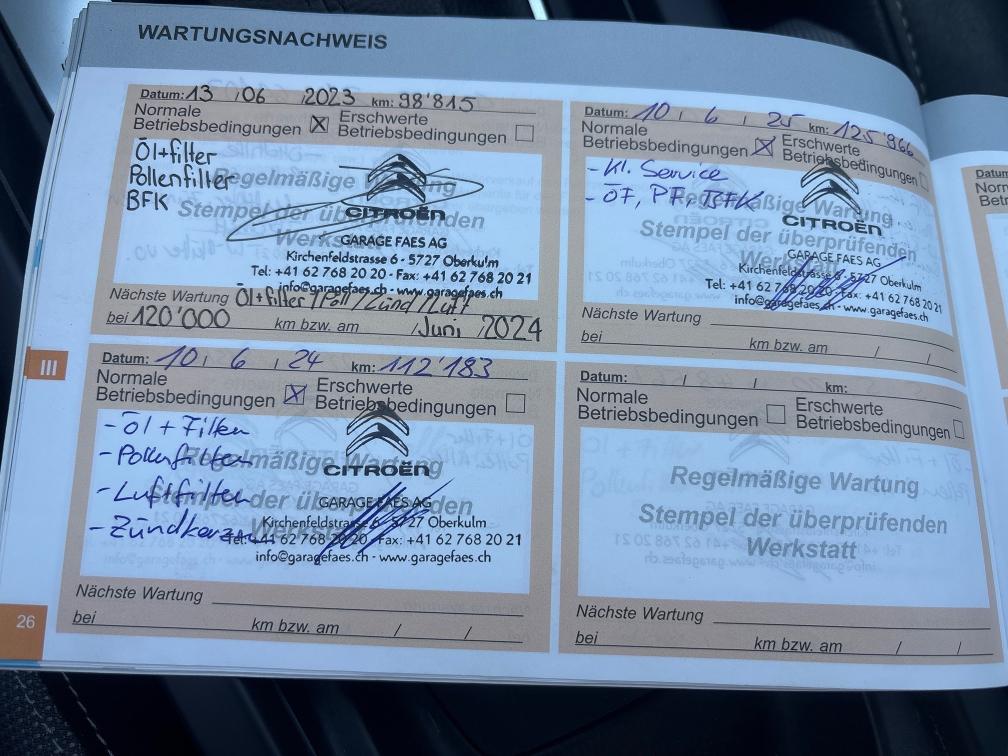 WARTUNGSNACHWEIS
Datum: 13 / 06 / 2023 km: 98'815
Normale Betriebsbedingungen ☒ Erschwerte Betriebsbedingungen ☐
Öl+filter
Pollenfilter
BFK
Regelmäßige Wartung
Stempel der überprüfenden
Werkstatt
CITROËN
GARAGE FAES AG
Kirchenfeldstrasse 6 - 5727 Oberkulm
Tel: +41 62 768 20 20 - Fax: +41 62 768 20 21
info@garagefaes.ch - www.garagefaes.ch
Nächste Wartung Öl+filter/Poll/Zünd/Luft
bei 120'000 km bzw. am / Juni / 2024
Datum: 10 / 6 / 25 km: 125'966
Normale Betriebsbedingungen ☒ Erschwerte Betriebsbedingungen ☐
- Kl. Service
- ÖF, PF, BFK
Regelmäßige Wartung
Stempel der überprüfenden
Werkstatt
CITROËN
GARAGE FAES AG
Kirchenfeldstrasse 6 - 5727 Oberkulm
Tel: +41 62 768 20 20 - Fax: +41 62 768 20 21
info@garagefaes.ch - www.garagefaes.ch
Nächste Wartung
bei km bzw. am / /
III
Datum: 10 / 6 / 24 km: 112'183
Normale Betriebsbedingungen ☒ Erschwerte Betriebsbedingungen ☐
- Öl + Filter
- Pollenfilter
- Luftfilter
- Zündkerzen
Regelmäßige Wartung
Stempel der überprüfenden
Werkstatt
CITROËN
GARAGE FAES AG
Kirchenfeldstrasse 6 - 5727 Oberkulm
Tel: +41 62 768 20 20 - Fax: +41 62 768 20 21
info@garagefaes.ch - www.garagefaes.ch
Nächste Wartung
bei km bzw. am / /
Datum: / / km:
Normale Betriebsbedingungen ☐ Erschwerte Betriebsbedingungen ☐
Regelmäßige Wartung
Stempel der überprüfenden
Werkstatt
Nächste Wartung
bei km bzw. am / /
26